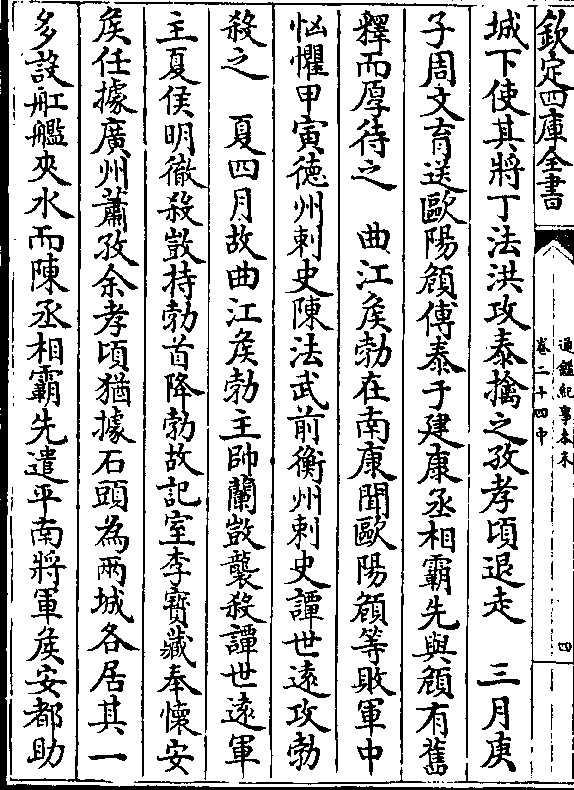 欽定四庫全書
通鑑紀事本末
卷二十四中
四
城下使其將丁法洪攻泰擒之孜孝頃退走　三月庚
子周文育送歐陽頠傅泰于建康丞相霸先與頠有舊
釋而厚待之　曲江侯勃在南康聞歐陽頠等敗軍中
恟懼甲寅德州刺史陳法武前衡州刺史譚世遠攻勃
殺之　夏四月故曲江侯勃主帥蘭敳襲殺譚世遠軍
主夏侯明徹殺敳持勃首降勃故記室李寳藏奉懷安
侯任據廣州蕭孜余孝頃猶據石頭為兩城各居其一
多設舡艦夾水而陳丞相霸先遣平南將軍侯安都助